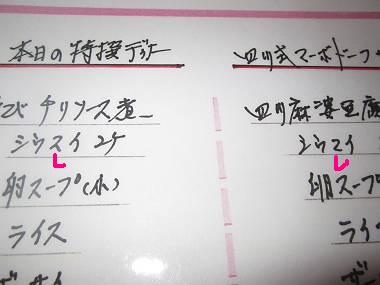 本日の特撰ディナー
えび チリソース煮
シウスイ 2ケ
卵スープ(小)
ライス
ザーサイ
四川式マーボドーフ
四川麻婆豆腐
シウマイ
卵スープ
ライ
ザー